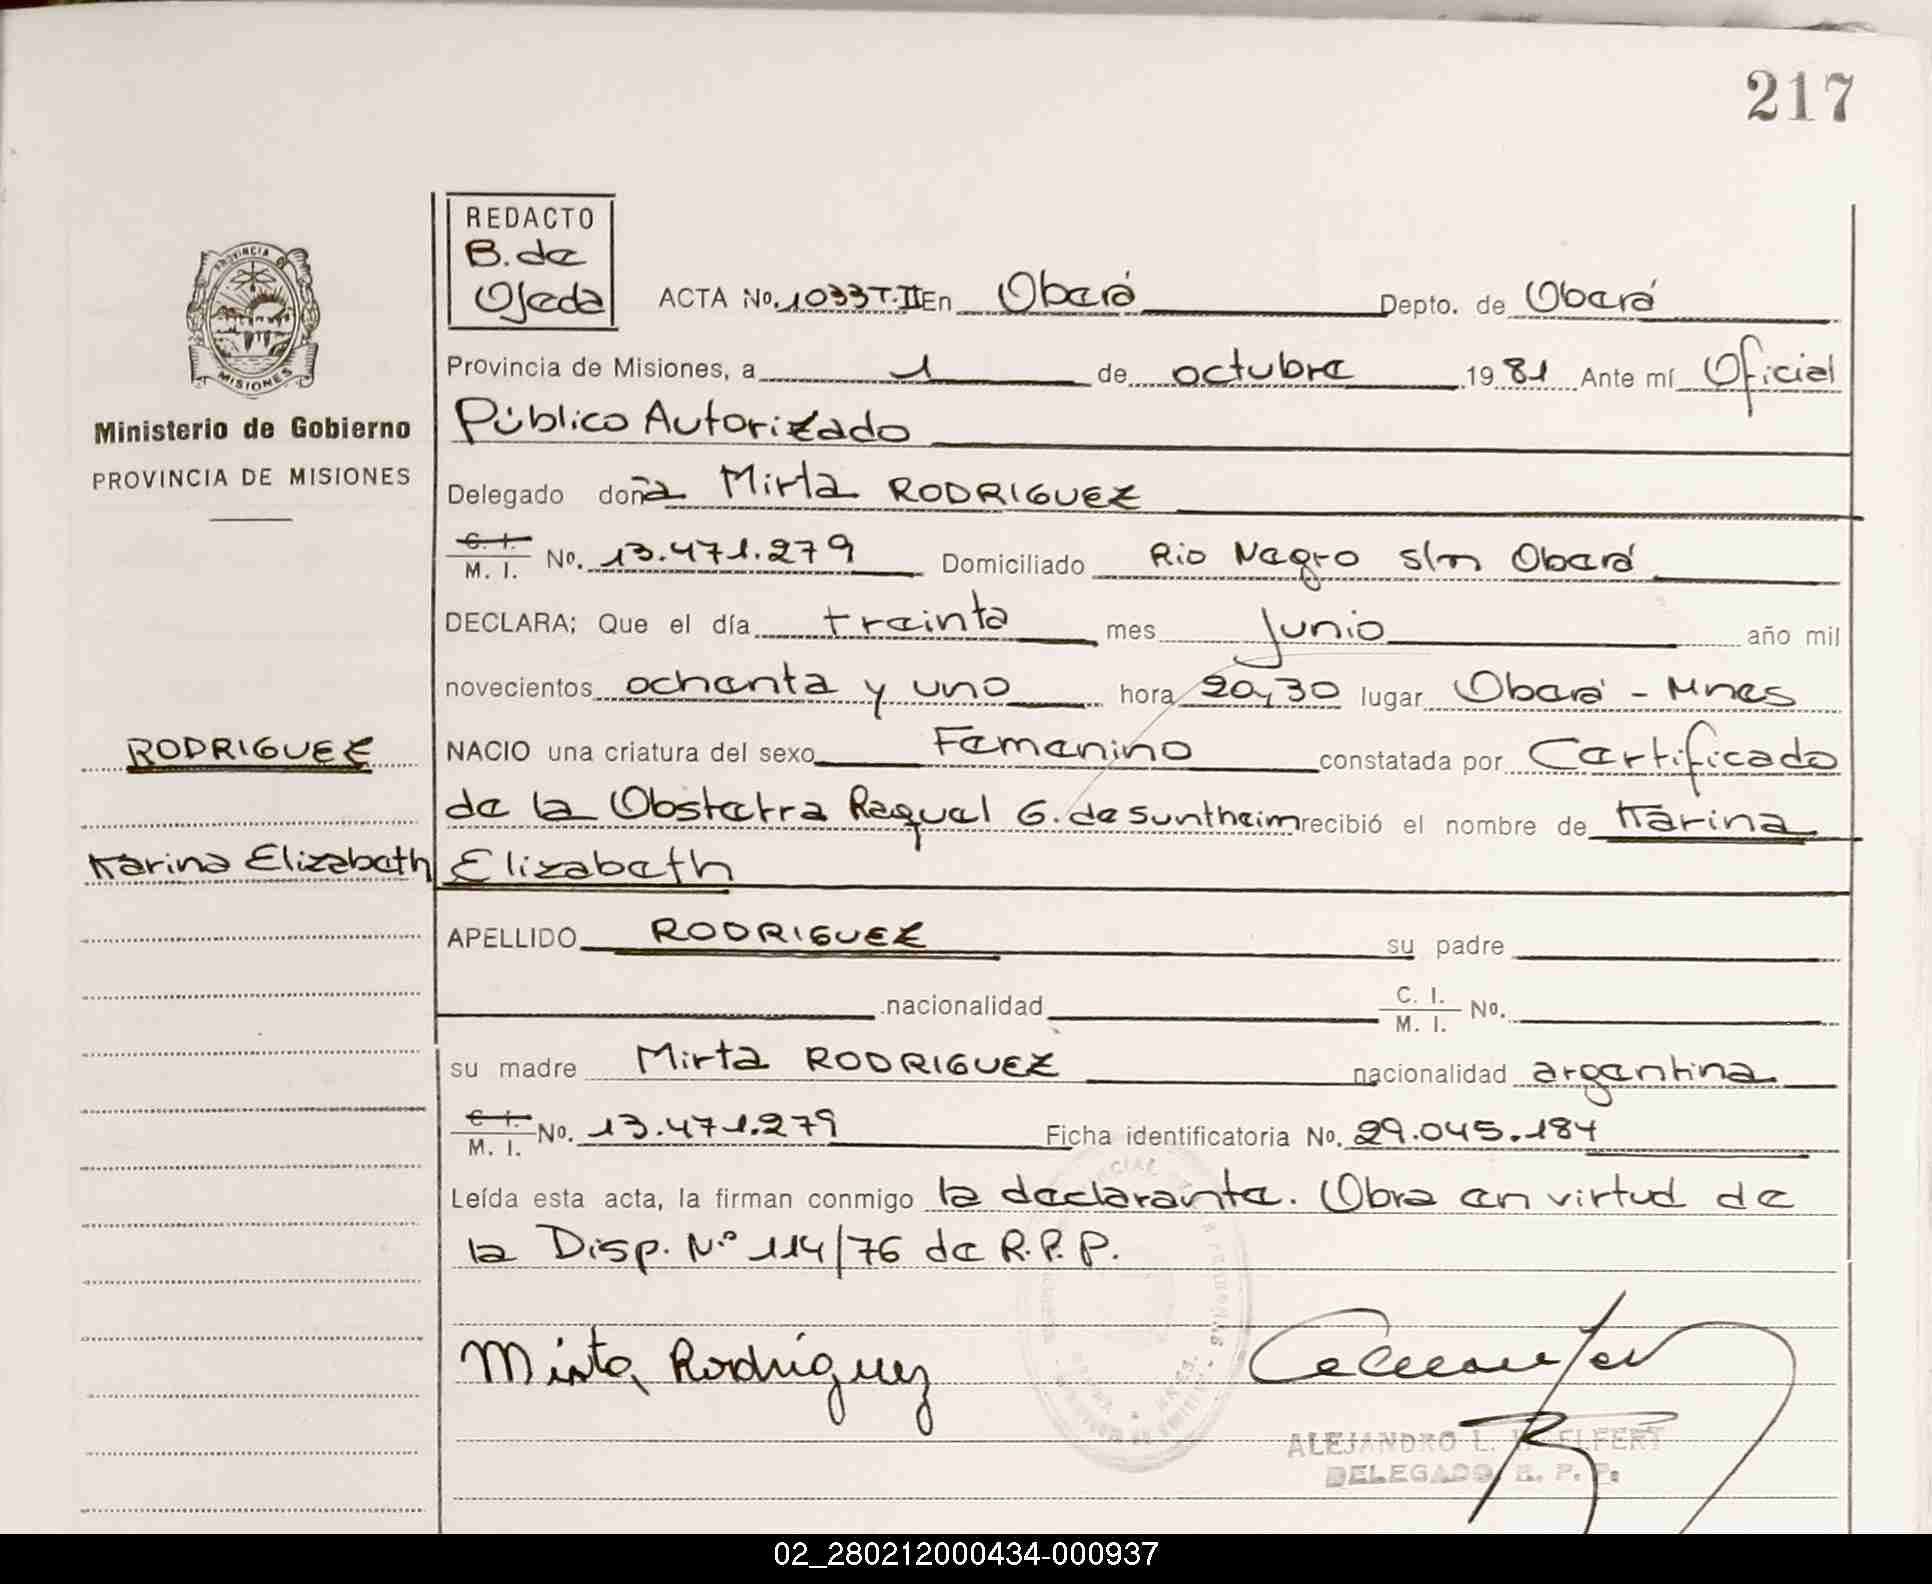 217
REDACTO
B. de
Ojeda
ACTA No. 1033 T. II En Oberá Depto. de Oberá
PROVINCIA DE
MISIONES
Provincia de Misiones, a 1 de octubre 1981 Ante mí Oficial
Ministerio de Gobierno
Público Autorizado
PROVINCIA DE MISIONES
Delegado doña Mirta RODRIGUEZ
C. I.
M. I. No. 13.471.279 Domiciliado Rio Negro s/n Oberá
DECLARA; Que el día treinta mes Junio año mil
novecientos ochenta y uno hora 20,30 lugar Oberá - Mnes
RODRIGUEZ
NACIO una criatura del sexo Femenino constatada por Certificado
de la Obstetra Raquel G. de Suntheim recibió el nombre de Karina
Karina Elizabeth
Elizabeth
APELLIDO RODRIGUEZ su padre
nacionalidad C. I.
M. I. No.
su madre Mirta RODRIGUEZ nacionalidad argentina
C. I.
M. I. No. 13.471.279 Ficha identificatoria No. 29.045.184
Leída esta acta, la firman conmigo la declarante. Obra en virtud de
la Disp. N.º 114/76 de R.P.P.
Mirta Rodríguez
ALEJANDRO L.
DELEGADO R. P. P.
02_280212000434-000937